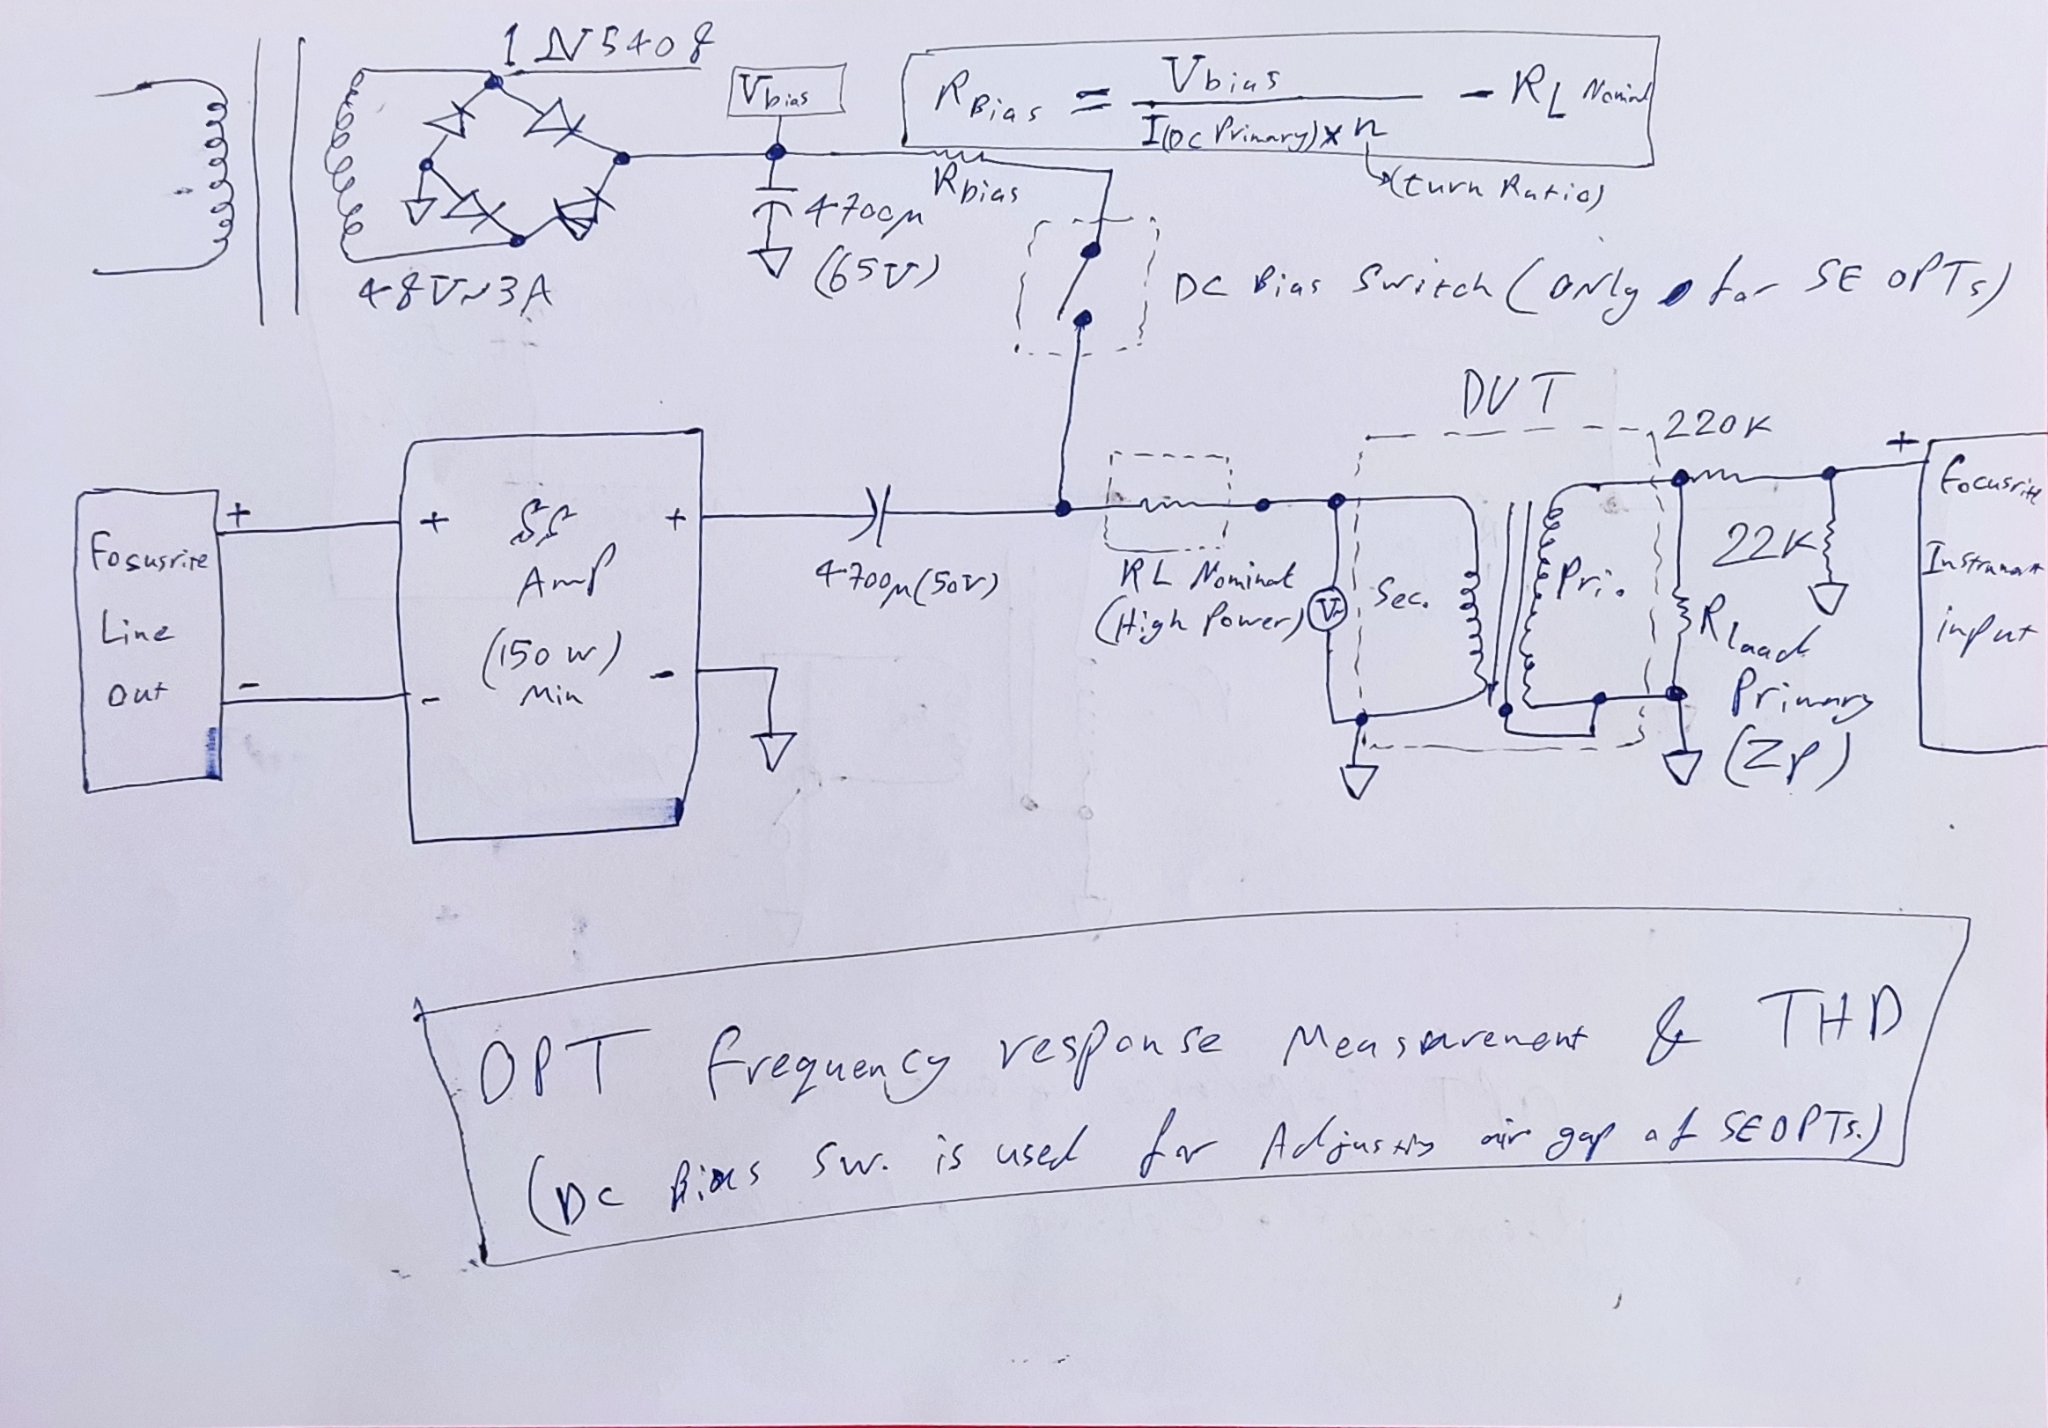 1N5408
48V~3A
Vbias
4700μ
(65V)
Rbias
RBias = Vbias / I(DC Primary) x n - RL Nominal
(turn Ratio)
DC Bias Switch (only for SE OPTs)
Focusrite
Line
out
+
-
+
-
SS
Amp
(150w)
Min
+
-
4700μ(50V)
RL Nominal
(High Power)
V~
DUT
Sec.
Pri.
220K
22K
RLoad
Primary
(ZP)
+
Focusrite
Instrument
input
OPT frequency response Measurement & THD
(DC Bias Sw. is used for Adjusting air gap of SEOPTs.)